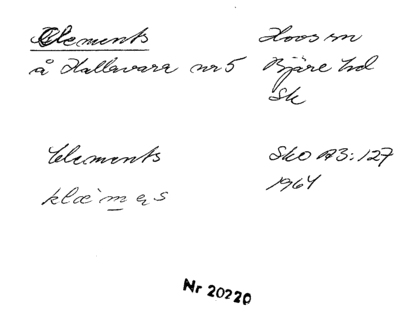 Clements Hoos sn
å Hallavara nr 5 Bjäre hd
Sk
Clements Sko A3:127
klæ`məs 1964
Nr 20220